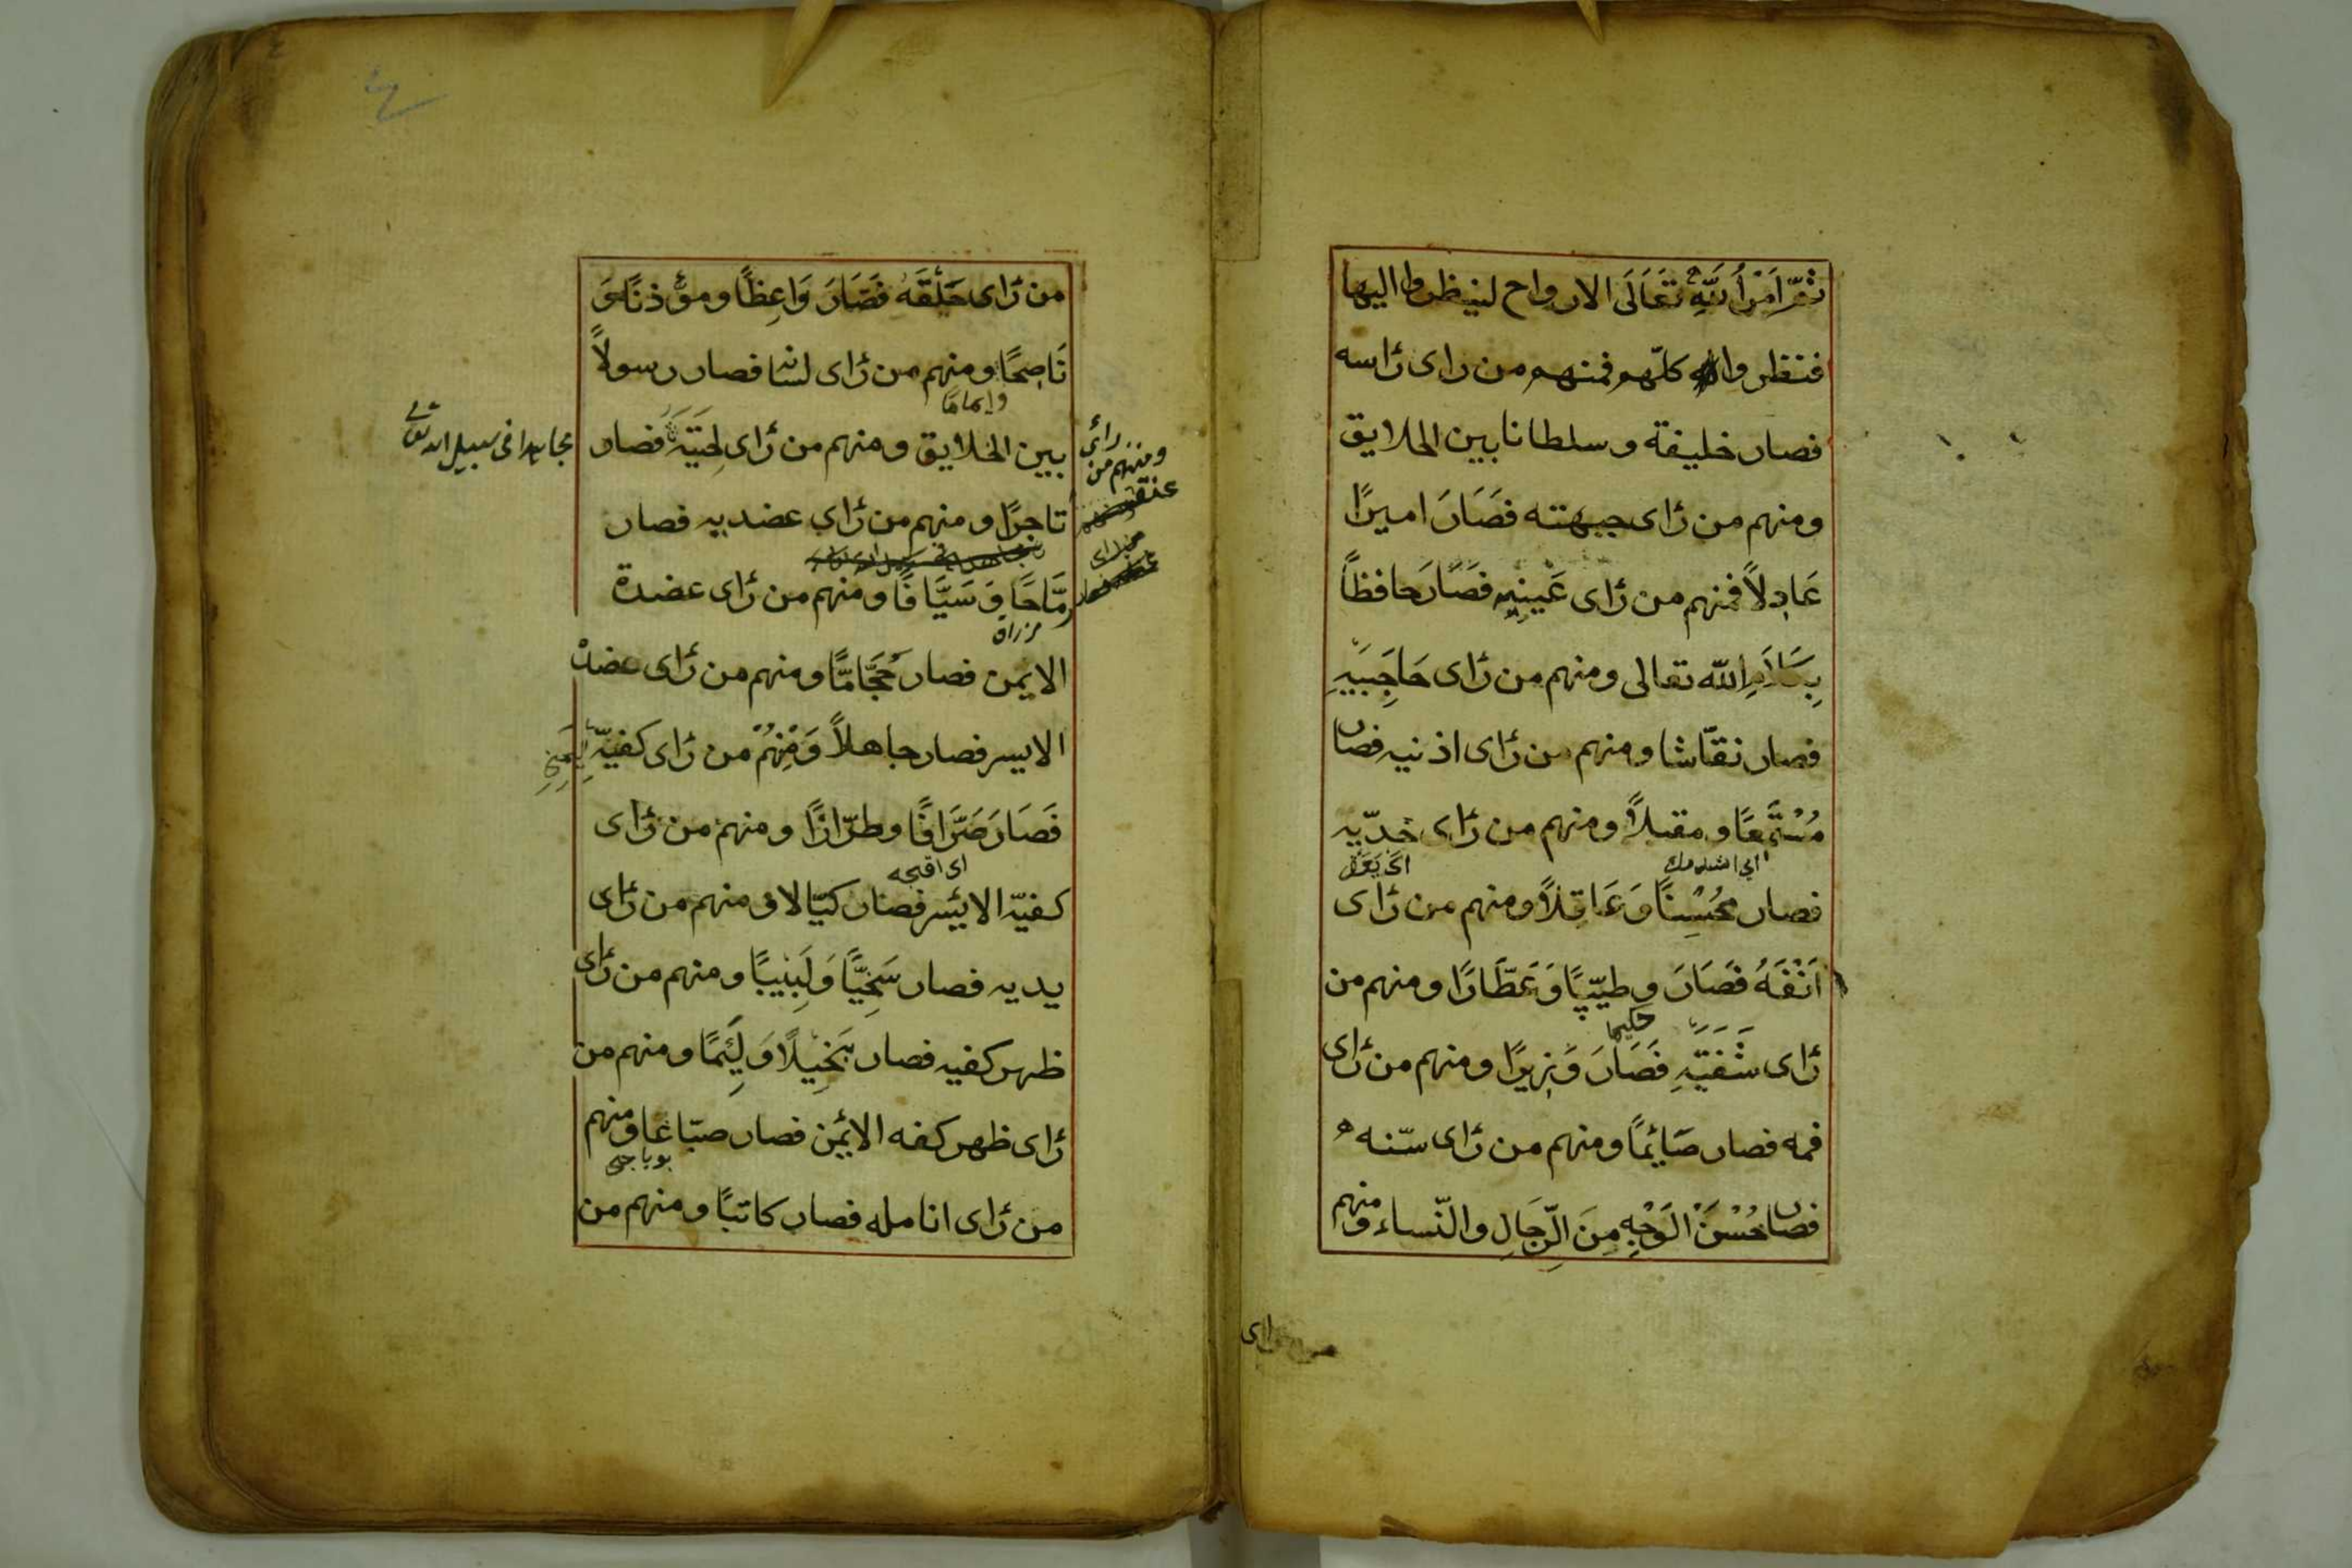 ثمّ اَمَرَ اللهُ تَعَالَى الارواح لينظروا اليها
فنظروا كلّهم فمنهم من راى رَاسه
فصار خليفة و سلطانا بين الخلايق
ومنهم من رَاى جبهته فَصَارَ اميرًا
عَادِلاً فمنهم من رَاى عَينيهِ فصَارَ حافظاً
بِكَلاَمِ الله تعالى ومنهم من رَاى حَاجِبَيْهِ
فصار نقّاشا ومنهم من رَاى اذنيه فصار
مُسْتَمِعًا و مقبلاً ومنهم من رَاى خدّيه
فصار مُحْسِنًا وَ عَاقِلاً ومنهم من رَاى
اَنْفَهُ فَصَارَ و طبيبًا وَعَطَّارًا ومنهم من
حكيما
رَاى شَفَتَيْهِ فَصَارَ وَزِيرًا ومنهم من رَاى
فمه فصار صَايئمًا ومنهم من رَاى سنّه
فصار حُسْنَ الْوَجْهِ مِنَ الرِّجَالِ والنّساء ومنهم
من راى
من رَاى حَلْقَهُ فَصَارَ وَاعِظًا و مؤذنًا وَ
نَاصِحًا و منهم من رَاى لسانه فصار رسولاً
واماما
بين الخلايق ومنهم من رَاى لِحْيَتَهُ فصار
مجاهدا فى سبيل الله تعالى
ومنهم من رائ
عنقه
تاجرًا و منهم من رَاى عضديه فصار
رمَّاحًا وَ سَيَّافًا ومنهم من رَاى عضدة
مزراق
الايمن فصار حَجَّامًّا ومنهم من رَاى عضده
الايسر فصار جاهلاً وَمِنْهُمْ من رَاى كفيّه
فَصَارَ صَرَّافًا و طرّازًا ومنهم من رَاى
اى اقجه
كفيّه الايْسر فصار كيّالا و منهم من رَاى
يديه فصار سَخِيًّا وَ لَبِيبًا ومنهم من رَاى
ظهر كفيه فصار بَخِيلًا وَ لَئِيمًا ومنهم من
رَاى ظهر كفه الايْمن فصار صبّاغا ومنهم
بوياجى
من رَاى انامله فصار كاتبًا ومنهم من